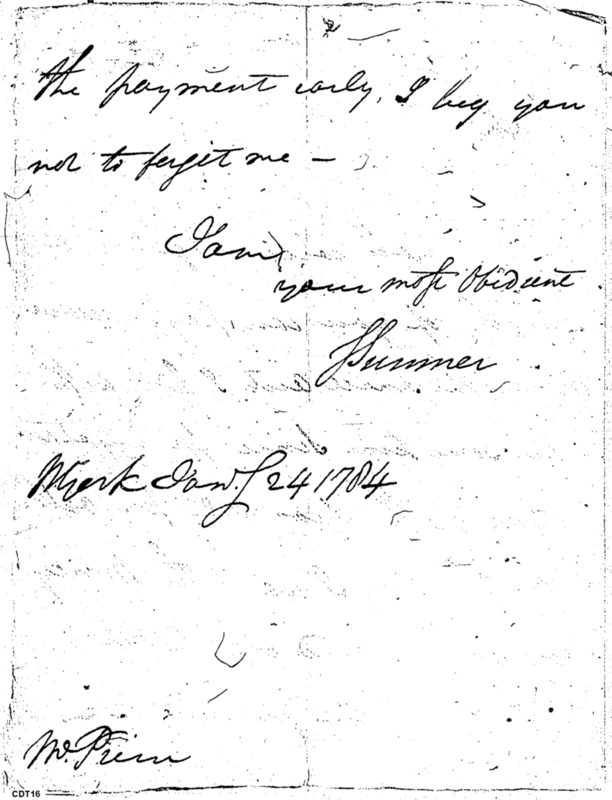 the payment early, I beg you
not to forget me —
I am
your most Obedient
JSumner
NYork Jany 24 1784
Mr. Prim
CDT16